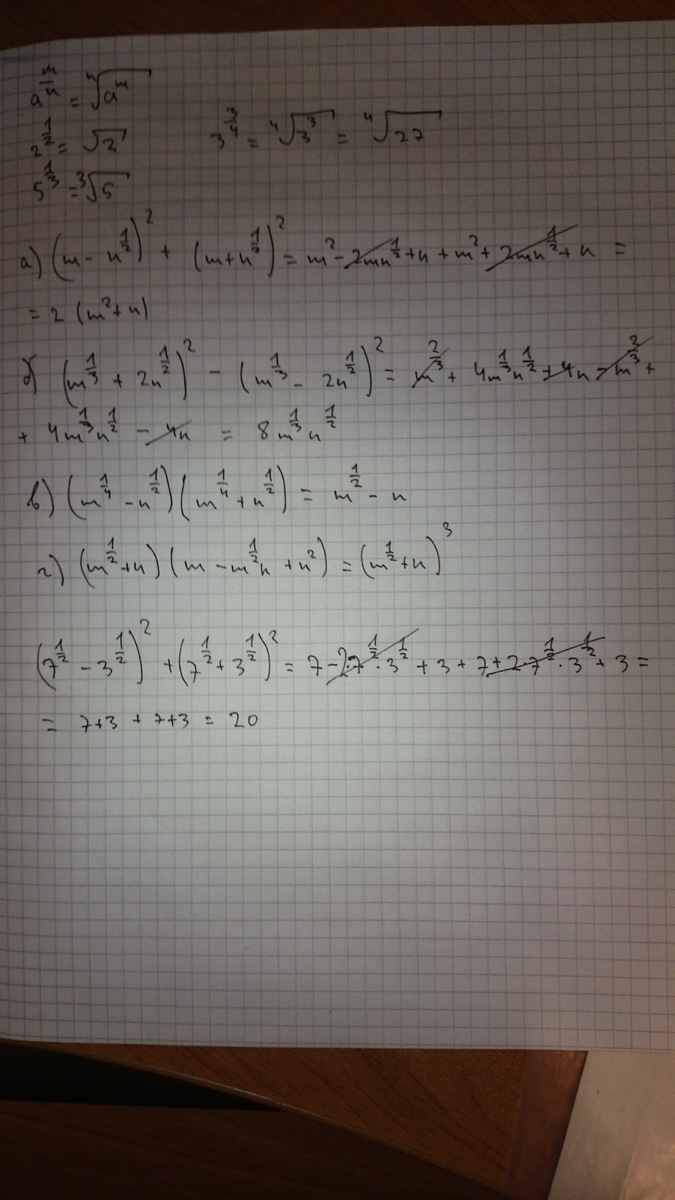 a^{m/n} = ⁿ√(a^m)
2^{1/2} = √2    3^{3/4} = ⁴√(3³) = ⁴√27
5^{1/3} = ³√5
а) (m - n^{1/2})² + (m + n^{1/2})² = m² - 2mn^{1/2} + n + m² + 2mn^{1/2} + n =
= 2 (m² + n)
б) (m^{1/3} + 2n^{1/2})² - (m^{1/3} - 2n^{1/2})² = m^{2/3} + 4m^{1/3}n^{1/2} + 4n - m^{2/3} +
+ 4m^{1/3}n^{1/2} - 4n = 8m^{1/3}n^{1/2}
в) (m^{1/4} - n^{1/2})(m^{1/4} + n^{1/2}) = m^{1/2} - n
г) (m^{1/2} + n)(m - m^{1/2}n + n²) = (m^{1/2} + n)³
(7^{1/2} - 3^{1/2})² + (7^{1/2} + 3^{1/2})² = 7 - 2·7^{1/2}·3^{1/2} + 3 + 7 + 2·7^{1/2}·3^{1/2} + 3 =
= 7+3 + 7+3 = 20